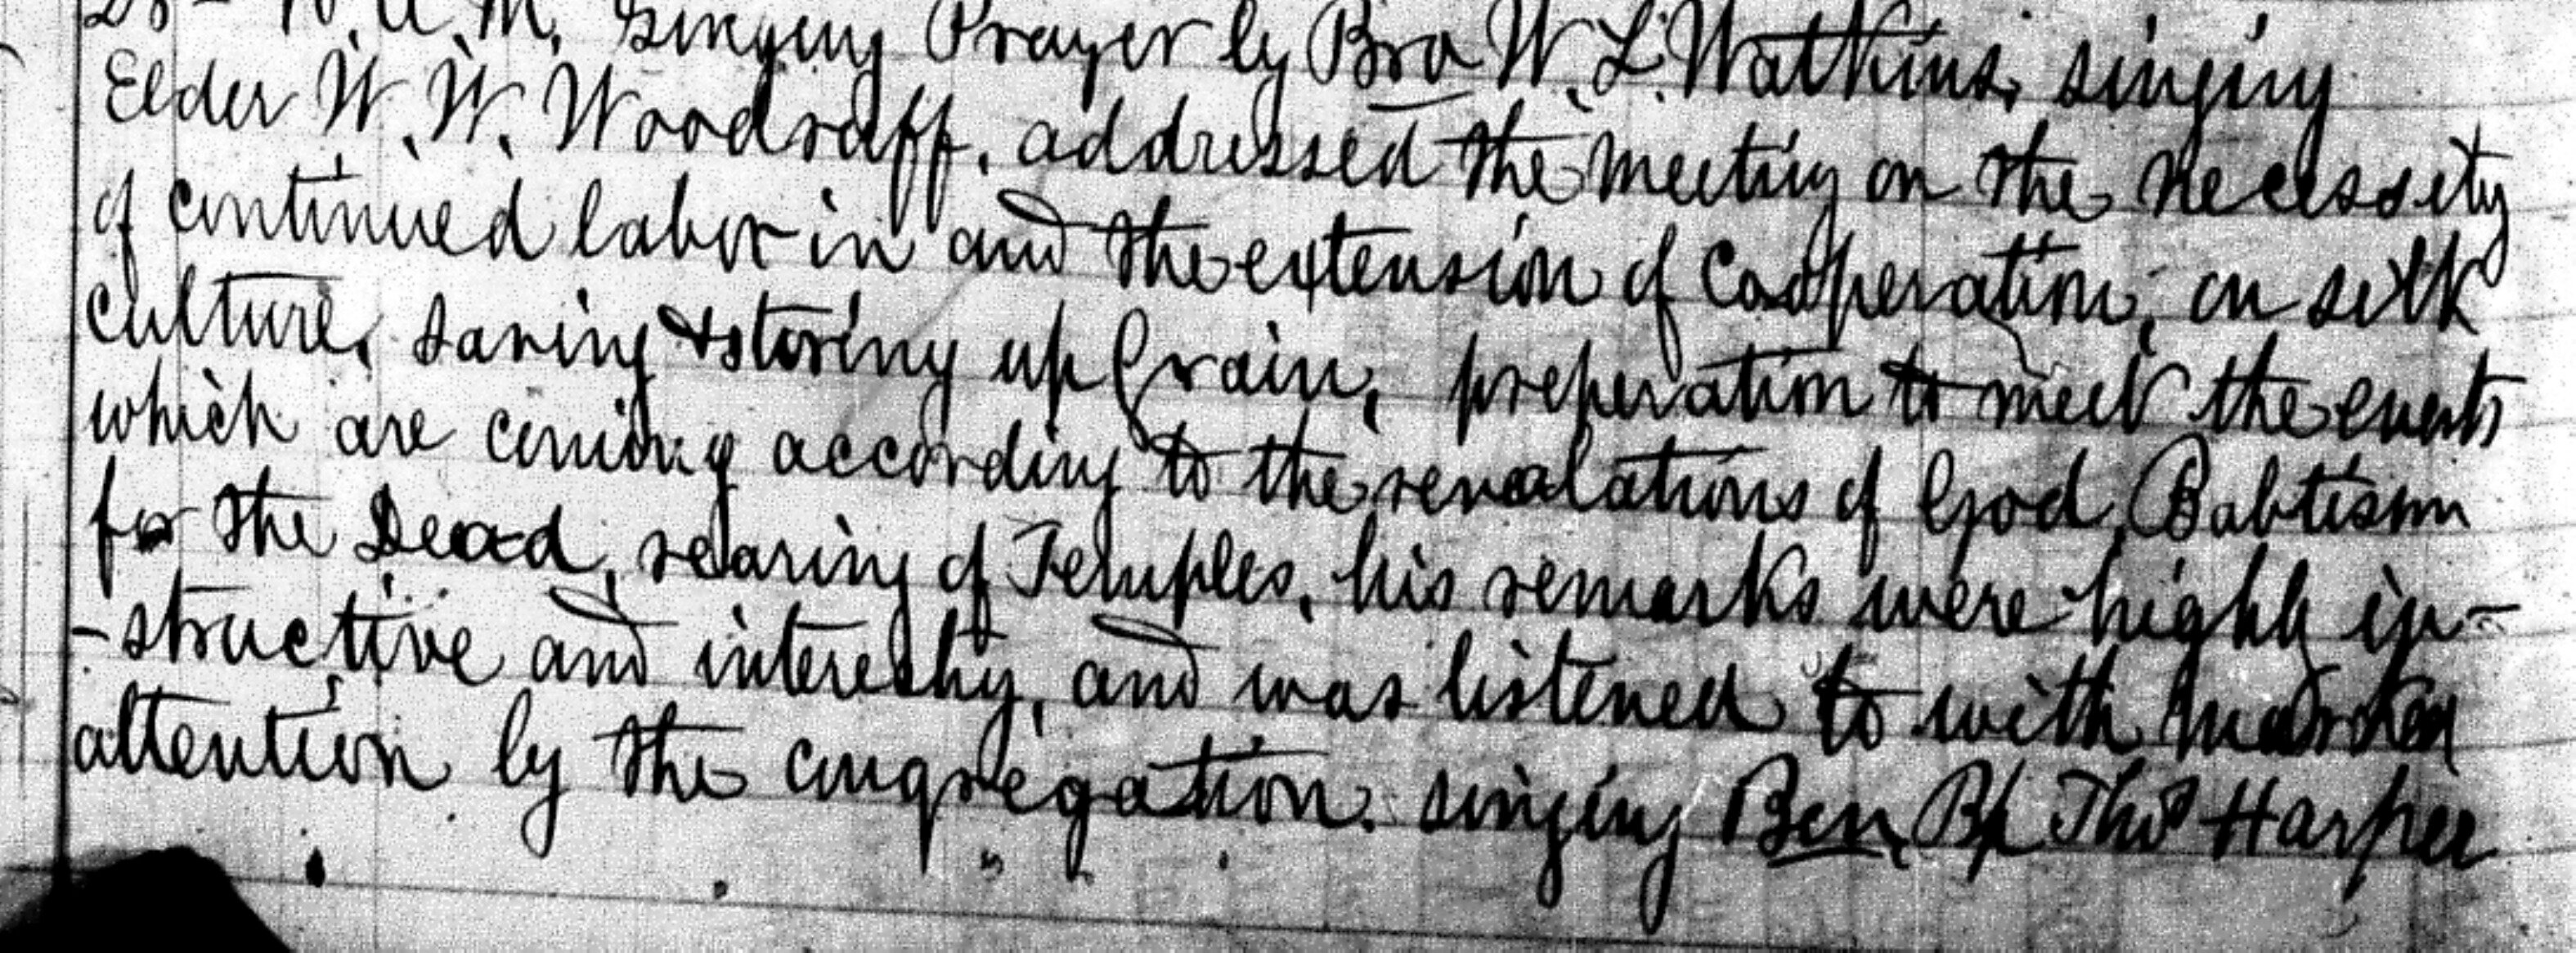 A.M. Singing Prayer by Bro W. L. Watkins, singing
Elder W. W. Woodraff, addressed the meeting on the necessity
of continued labor in and the extension of Cooperation, on silk
culture, saving & storing up Grain, preperation to meet the events
which are coming according to the revalations of God, Babtism
for the Dead, rearing of Temples, his remarks were highly in-
-structive and interestig, and was listened to with marked
attention by the congregation. singing Ben, Bp Thos Harper